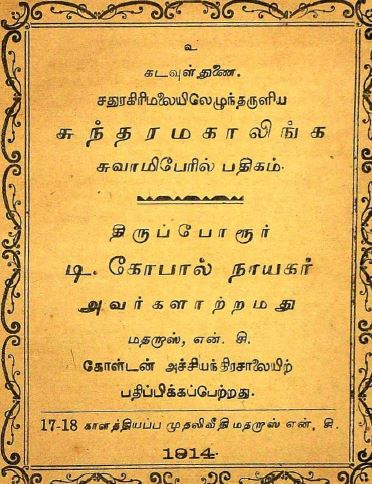 உ
கடவுள் துணை.
சதுரகிரிமலையிலெழுந்தருளிய
சுந்தரமகாலிங்க
சுவாமிபேரில் பதிகம்.
திருப்போரூர்
டி. கோபால் நாயகர்
அவர்களாற்றமது
மதறாஸ், என். சி.
கோள்டன் அச்சியந்திரசாலையிற்
பதிப்பிக்கப்பெற்றது.
17-18 காளத்தியப்ப முதலிவீதி மதறாஸ் என். சி.
1914.